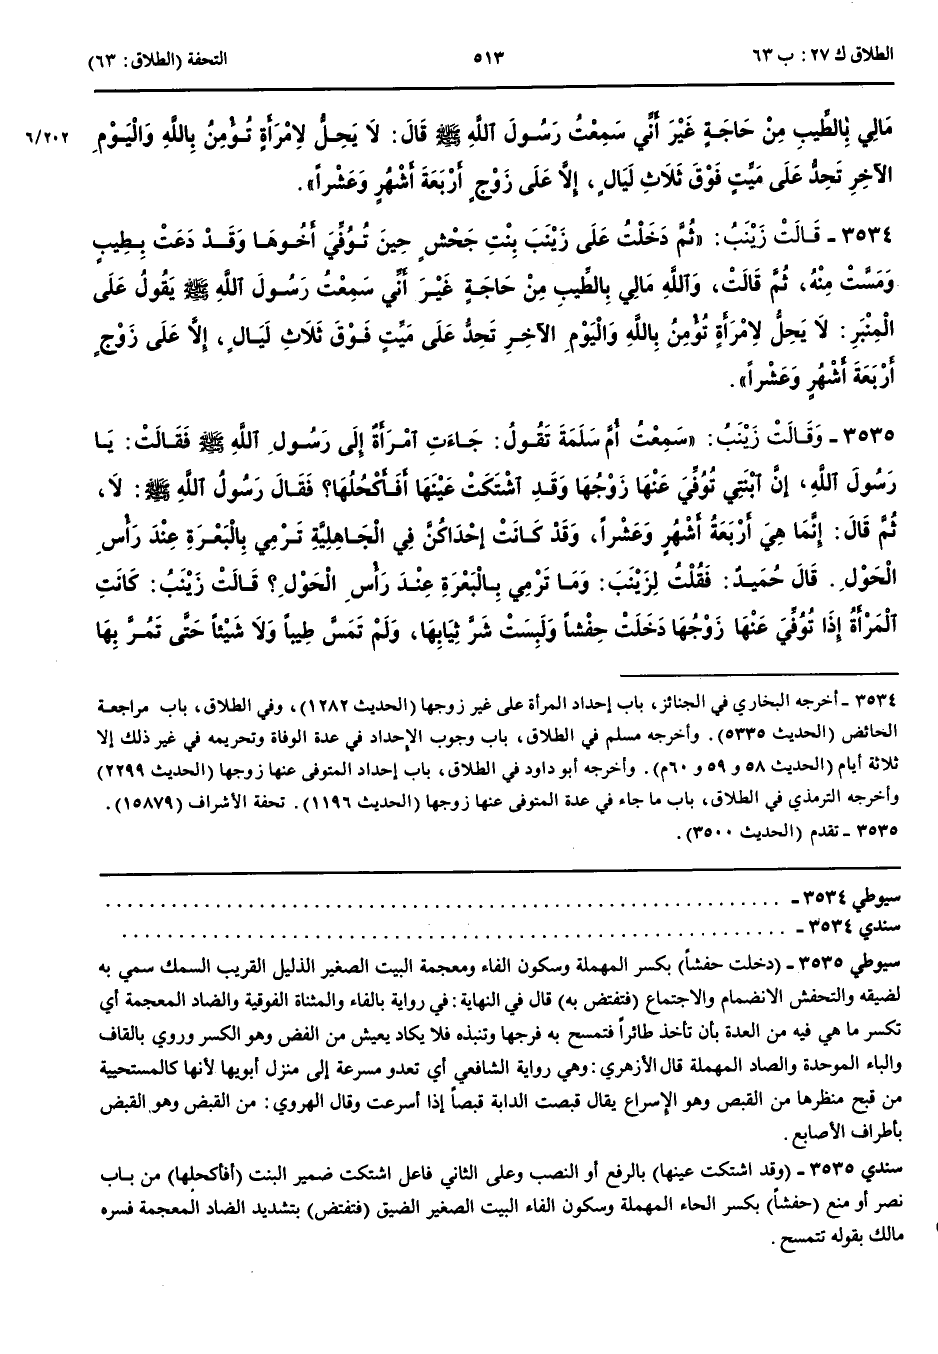 الطلاق ك ٢٧: ب ٦٣ ٥١٣ التحفة (الطلاق: ٦٣)
مَالِي بِالطِّيبِ مِنْ حَاجَةٍ غَيْرَ أَنِّي سَمِعْتُ رَسُولَ ٱللَّهِ ﷺ قَالَ: لَا يَحِلُّ لِامْرَأَةٍ تُؤْمِنُ بِاللَّهِ وَالْيَوْمِ ٦/٢٠٢
الآخِرِ تَحِدُّ عَلَى مَيِّتٍ فَوْقَ ثَلَاثِ لَيَالٍ، إِلَّا عَلَى زَوْجٍ أَرْبَعَةَ أَشْهُرٍ وَعَشْراً».
٣٥٣٤ ـ قَالَتْ زَيْنَبُ: «ثُمَّ دَخَلْتُ عَلَى زَيْنَبَ بِنْتِ جَحْشٍ حِينَ تُوُفِّيَ أَخُوهَا وَقَدْ دَعَتْ بِطِيبٍ
وَمَسَّتْ مِنْهُ، ثُمَّ قَالَتْ، وَٱللَّهِ مَالِي بِالطِّيبِ مِنْ حَاجَةٍ غَيْرَ أَنِّي سَمِعْتُ رَسُولَ ٱللَّهِ ﷺ يَقُولُ عَلَى
الْمِنْبَرِ: لَا يَحِلُّ لِامْرَأَةٍ تُؤْمِنُ بِاللَّهِ وَالْيَوْمِ الآخِرِ تَحِدُّ عَلَى مَيِّتٍ فَوْقَ ثَلَاثِ لَيَالٍ، إِلَّا عَلَى زَوْجٍ
أَرْبَعَةَ أَشْهُرٍ وَعَشْراً».
٣٥٣٥ ـ وَقَالَتْ زَيْنَبُ: «سَمِعْتُ أُمَّ سَلَمَةَ تَقُولُ: جَاءَتِ ٱمْرَأَةٌ إِلَى رَسُولِ ٱللَّهِ ﷺ فَقَالَتْ: يَا
رَسُولَ ٱللَّهِ، إِنَّ ٱبْنَتِي تُوُفِّيَ عَنْهَا زَوْجُهَا وَقَدِ ٱشْتَكَتْ عَيْنَهَا أَفَأَكْحُلُهَا؟ فَقَالَ رَسُولُ ٱللَّهِ ﷺ: لَا،
ثُمَّ قَالَ: إِنَّمَا هِيَ أَرْبَعَةُ أَشْهُرٍ وَعَشْراً، وَقَدْ كَانَتْ إِحْدَاكُنَّ فِي الْجَاهِلِيَّةِ تَرْمِي بِالْبَعْرَةِ عِنْدَ رَأْسِ
الْحَوْلِ. قَالَ حُمَيدٌ: فَقُلْتُ لِزَيْنَبَ: وَمَا تَرْمِي بِالْبَعْرَةِ عِنْدَ رَأْسِ الْحَوْلِ؟ قَالَتْ زَيْنَبُ: كَانَتِ
ٱلْمَرْأَةُ إِذَا تُوُفِّيَ عَنْهَا زَوْجُهَا دَخَلَتْ حِفْشاً وَلَبِسَتْ شَرَّ ثِيَابِهَا، وَلَمْ تَمَسَّ طِيباً وَلَا شَيْئاً حَتَّى تَمُرَّ بِهَا
٣٥٣٤ ـ أخرجه البخاري في الجنائز، باب إحداد المرأة على غير زوجها (الحديث ١٢٨٢)، وفي الطلاق، باب مراجعة
الحائض (الحديث ٥٣٣٥). وأخرجه مسلم في الطلاق، باب وجوب الإحداد في عدة الوفاة وتحريمه في غير ذلك إلا
ثلاثة أيام (الحديث ٥٨ و ٥٩ و ٦٠م). وأخرجه أبو داود في الطلاق، باب إحداد المتوفى عنها زوجها (الحديث ٢٢٩٩)
وأخرجه الترمذي في الطلاق، باب ما جاء في عدة المتوفى عنها زوجها (الحديث ١١٩٦). تحفة الأشراف (١٥٨٧٩).
٣٥٣٥ ـ تقدم (الحديث ٣٥٠٠).
سيوطي ٣٥٣٤ ـ . . . . . . . . . . . . . . . . . . . . . . . . . . . . . . . . . . . . . . . .
سندي ٣٥٣٤ ـ . . . . . . . . . . . . . . . . . . . . . . . . . . . . . . . . . . . . . . . .
سيوطي ٣٥٣٥ ـ (دخلت حفشاً) بكسر المهملة وسكون الفاء ومعجمة البيت الصغير الذليل القريب السمك سمي به
لضيقه والتحفش الانضمام والاجتماع (فتفتض به) قال في النهاية: في رواية بالفاء والمثناة الفوقية والضاد المعجمة أي
تكسر ما هي فيه من العدة بأن تأخذ طائراً فتمسح به فرجها وتنبذه فلا يكاد يعيش من الفض وهو الكسر وروي بالقاف
والباء الموحدة والصاد المهملة قال الأزهري: وهي رواية الشافعي أي تعدو مسرعة إلى منزل أبويها لأنها كالمستحيية
من قبح منظرها من القبص وهو الإسراع يقال قبصت الدابة قبصاً إذا أسرعت وقال الهروي: من القبض وهو القبض
بأطراف الأصابع.
سندي ٣٥٣٥ ـ (وقد اشتكت عينها) بالرفع أو النصب وعلى الثاني فاعل اشتكت ضمير البنت (أفأكحلها) من باب
نصر أو منع (حفشاً) بكسر الحاء المهملة وسكون الفاء البيت الصغير الضيق (فتفتض) بتشديد الضاد المعجمة فسره
مالك بقوله تتمسح.